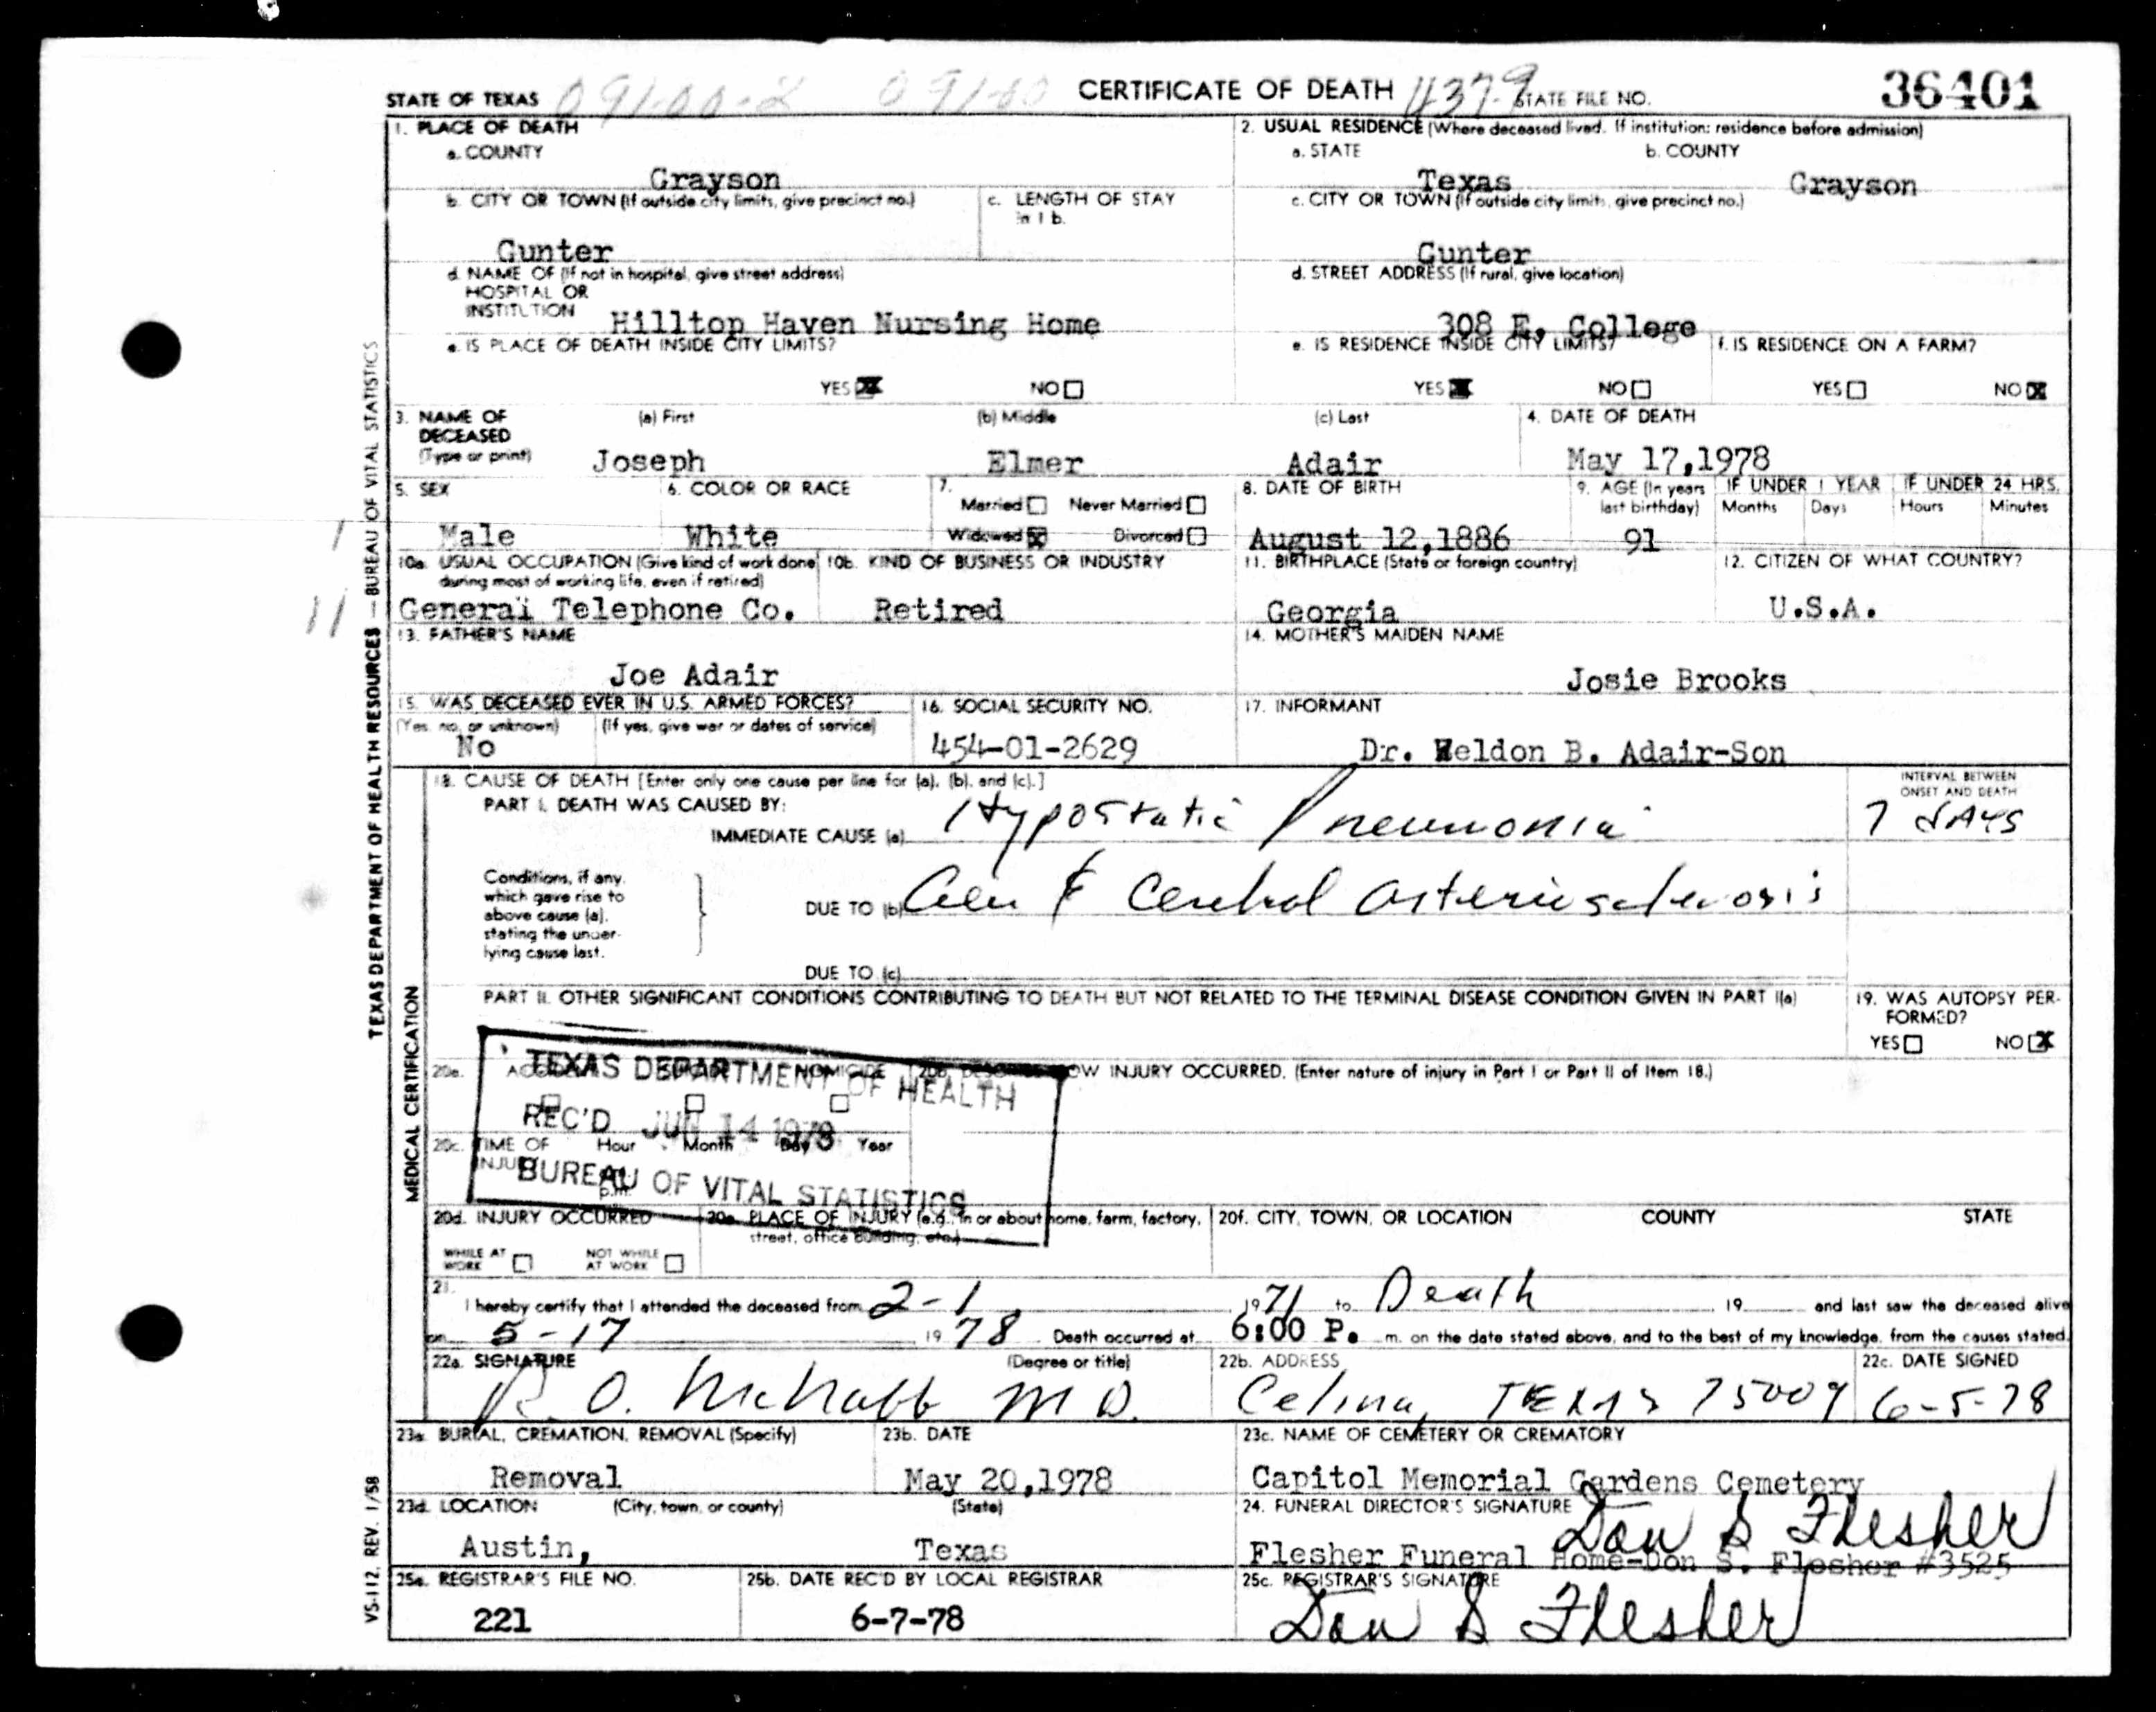 STATE OF TEXAS 091-00-2 091-00 CERTIFICATE OF DEATH 4379 STATE FILE NO. 36401
1. PLACE OF DEATH
a. COUNTY
Grayson
2. USUAL RESIDENCE (Where deceased lived. If institution: residence before admission)
a. STATE b. COUNTY
Texas Grayson
b. CITY OR TOWN (If outside city limits, give precinct no.)
Gunter
c. LENGTH OF STAY
in 1 b.
c. CITY OR TOWN (If outside city limits, give precinct no.)
Gunter
d. NAME OF (If not in hospital, give street address)
HOSPITAL OR
INSTITUTION Hilltop Haven Nursing Home
d. STREET ADDRESS (If rural, give location)
308 E. College
e. IS PLACE OF DEATH INSIDE CITY LIMITS?
YES NO
e. IS RESIDENCE INSIDE CITY LIMITS?
YES NO
f. IS RESIDENCE ON A FARM?
YES NO
3. NAME OF
DECEASED
(Type or print)
(a) First (b) Middle (c) Last
Joseph Elmer Adair
4. DATE OF DEATH
May 17,1978
5. SEX
Male
6. COLOR OR RACE
White
7.
Married Never Married
Widowed Divorced
8. DATE OF BIRTH
August 12,1886
9. AGE (In years
last birthday)
91
IF UNDER 1 YEAR
Months Days
IF UNDER 24 HRS.
Hours Minutes
10a. USUAL OCCUPATION (Give kind of work done
during most of working life, even if retired)
General Telephone Co.
10b. KIND OF BUSINESS OR INDUSTRY
Retired
11. BIRTHPLACE (State or foreign country)
Georgia
12. CITIZEN OF WHAT COUNTRY?
U.S.A.
13. FATHER'S NAME
Joe Adair
14. MOTHER'S MAIDEN NAME
Josie Brooks
15. WAS DECEASED EVER IN U.S. ARMED FORCES?
(Yes, no, or unknown) (If yes, give war or dates of service)
No
16. SOCIAL SECURITY NO.
454-01-2629
17. INFORMANT
Dr. Weldon B. Adair-Son
18. CAUSE OF DEATH [Enter only one cause per line for (a), (b), and (c).]
PART I. DEATH WAS CAUSED BY:
IMMEDIATE CAUSE (a) Hypostatic Pneumonia
INTERVAL BETWEEN
ONSET AND DEATH
7 days
Conditions, if any,
which gave rise to
above cause (a),
stating the under-
lying cause last.
DUE TO (b) & Cerebral arteriosclerosis
DUE TO (c)
PART II. OTHER SIGNIFICANT CONDITIONS CONTRIBUTING TO DEATH BUT NOT RELATED TO THE TERMINAL DISEASE CONDITION GIVEN IN PART I(a)
19. WAS AUTOPSY PER-
FORMED?
YES NO
TEXAS DEPARTMENT OF HEALTH
REC'D JUN 14 1978
BUREAU OF VITAL STATISTICS
20a. HOMICIDE
20b. HOW INJURY OCCURRED. (Enter nature of injury in Part I or Part II of Item 18.)
20c. TIME OF
INJURY
Hour Month Day Year
p.m.
20d. INJURY OCCURRED
WHILE AT
WORK
NOT WHILE
AT WORK
20e. PLACE OF INJURY (e.g., in or about home, farm, factory,
street, office building, etc.)
20f. CITY, TOWN, OR LOCATION COUNTY STATE
21.
I hereby certify that I attended the deceased from 2-1, 1971 to Death 19 and last saw the deceased alive
on 5-17 1978 Death occurred at 6:00 P. m. on the date stated above, and to the best of my knowledge, from the causes stated.
22a. SIGNATURE (Degree or title)
R. O. McNabb M D.
22b. ADDRESS
Celina, TEXAS 75009
22c. DATE SIGNED
6-5-78
23a. BURIAL, CREMATION, REMOVAL (Specify)
Removal
23b. DATE
May 20,1978
23c. NAME OF CEMETERY OR CREMATORY
Capitol Memorial Gardens Cemetery
23d. LOCATION (City, town, or county) (State)
Austin, Texas
24. FUNERAL DIRECTOR'S SIGNATURE
Don S Flesher
Flesher Funeral Home-Don S. Flesher #3525
25a. REGISTRAR'S FILE NO.
221
25b. DATE REC'D BY LOCAL REGISTRAR
6-7-78
25c. REGISTRAR'S SIGNATURE
Don S Flesher
TEXAS DEPARTMENT OF HEALTH RESOURCES — BUREAU OF VITAL STATISTICS
MEDICAL CERTIFICATION
VS-112, REV. 1/58